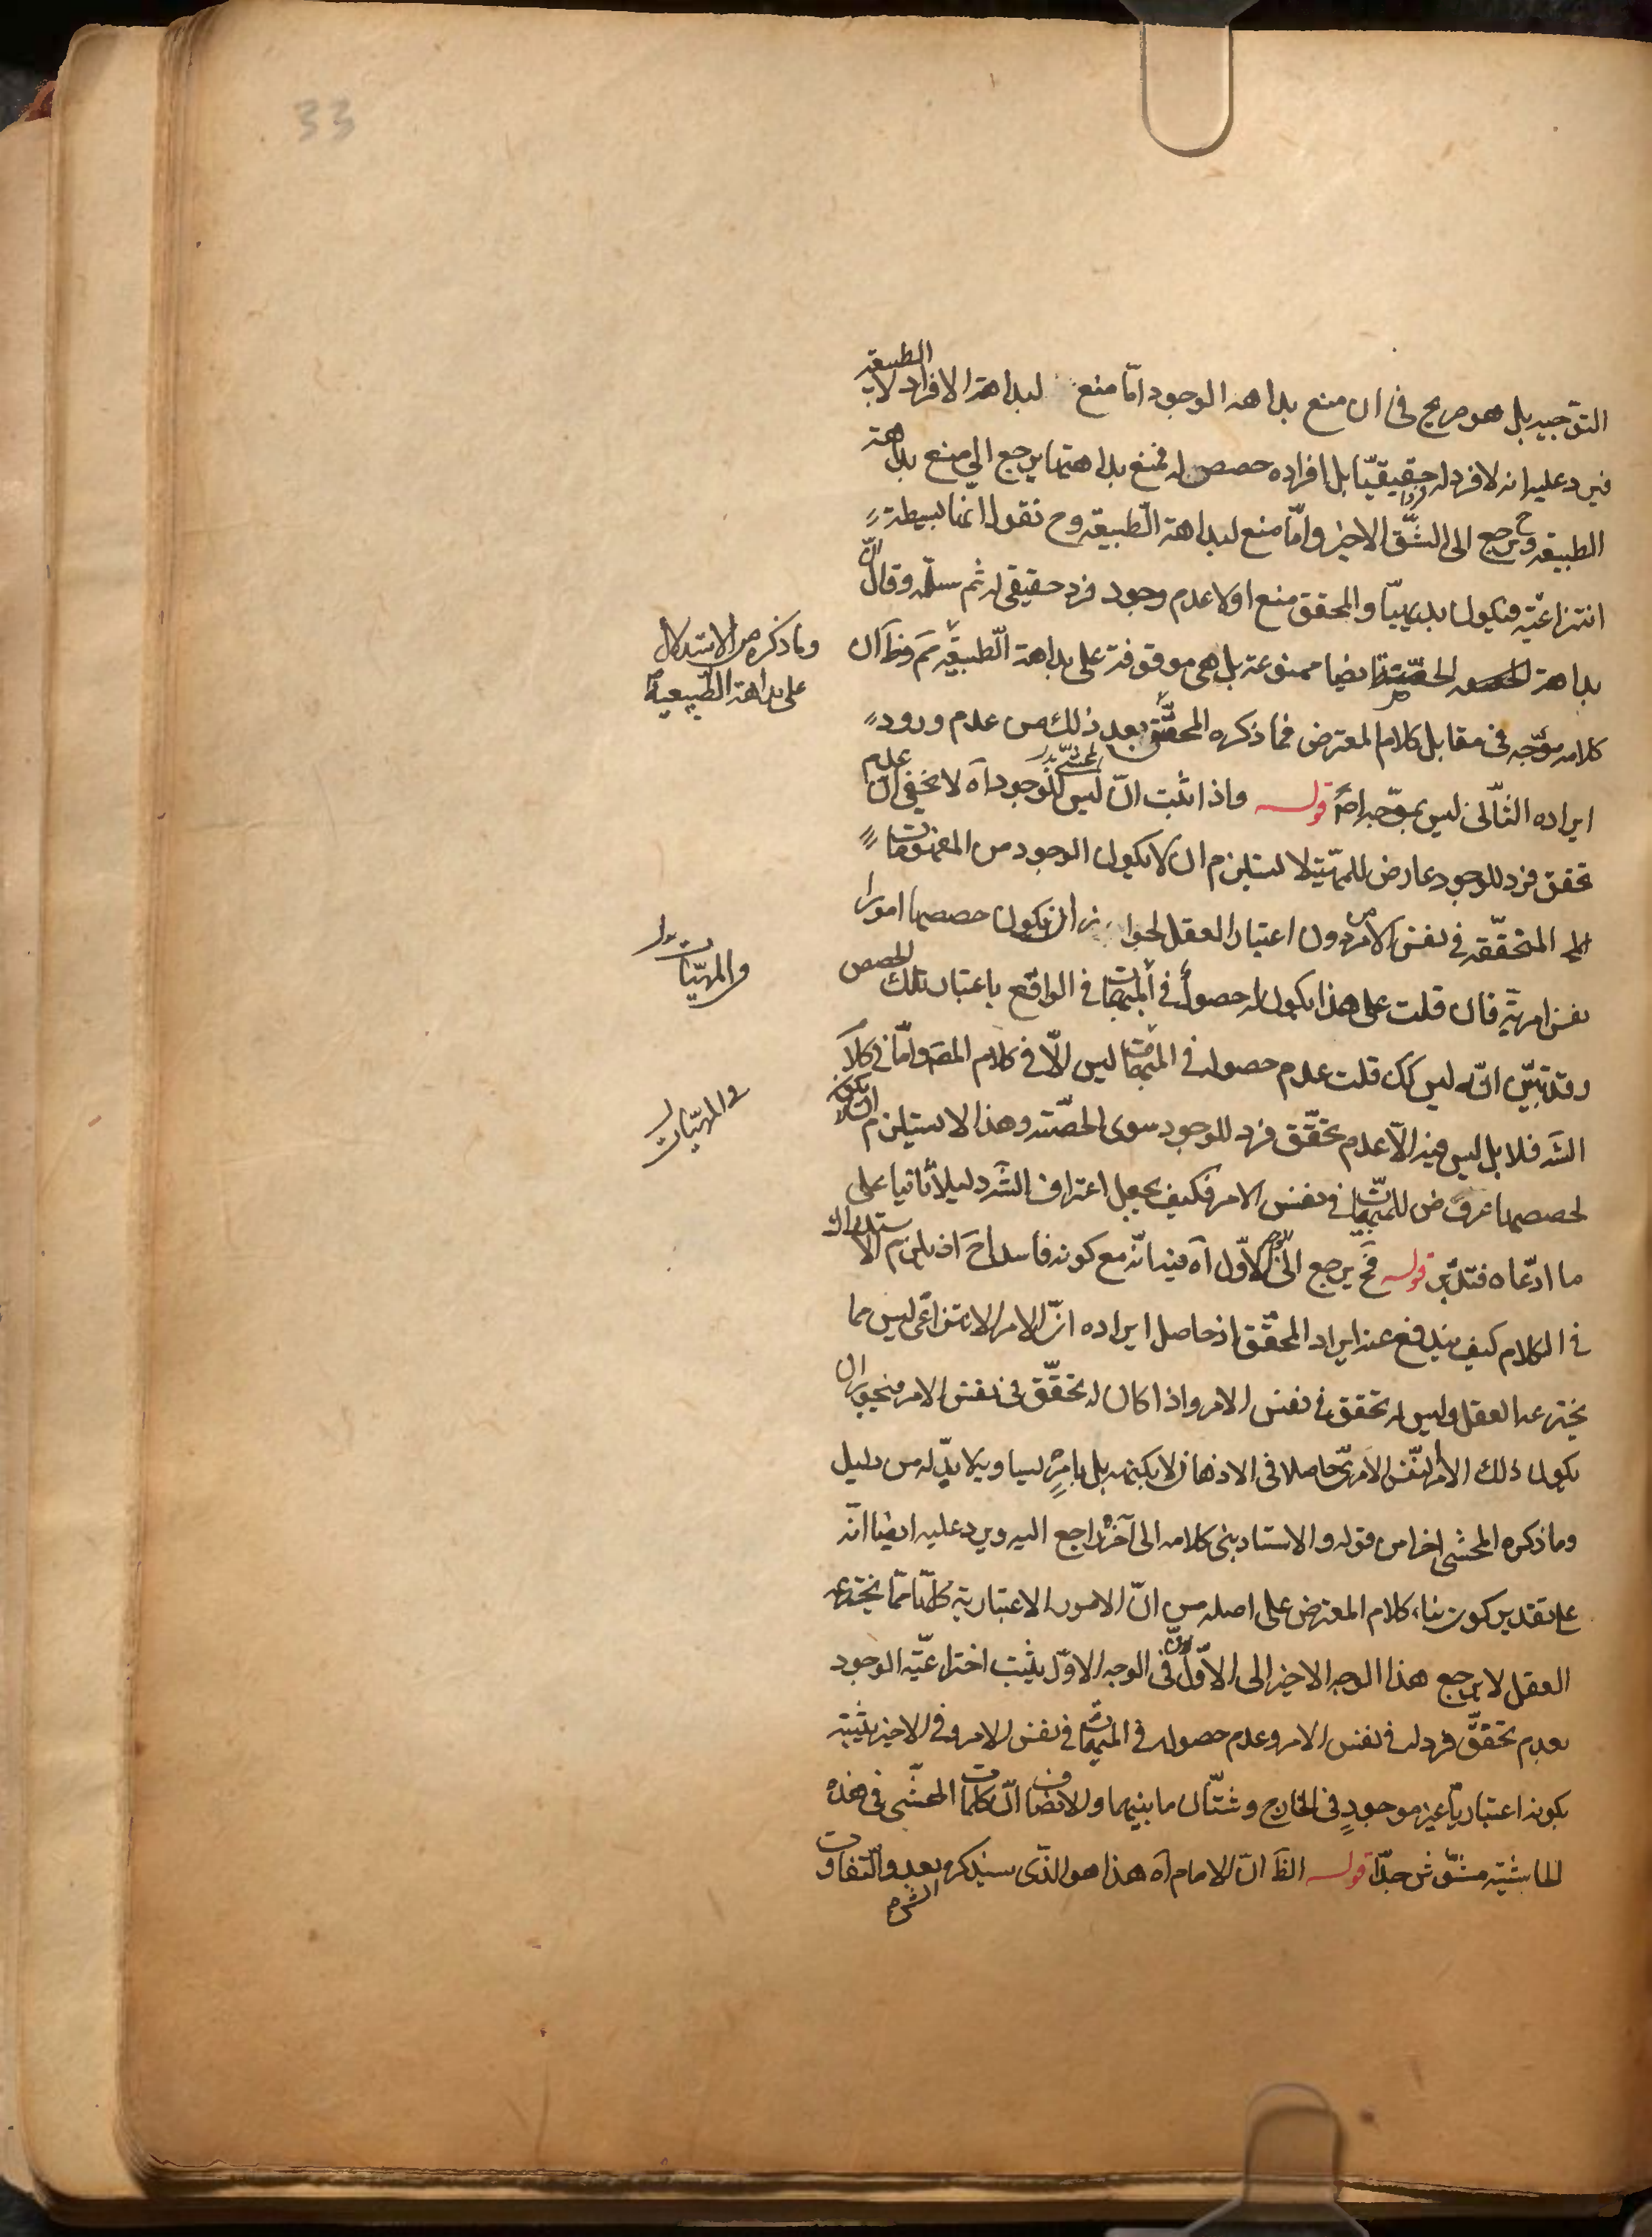 33
التوجيه بل هو صريح في ان منع بداهة الوجود امّا منع لبداهة الافراد لا الطبيعة
فيرد عليه انه لا فرد له حقيقيّا بل افراده حصص له فمنع بداهتها يرجع الى منع بداهة
الطبيعة وح يرجع الى الشّق الاخير وامّا منع لبداهة الطبيعة وح نقول انها بسيطة
انتزاعيّة فيكون بديهيّا والمحقق منع اولا عدم وجود فرد حقيقي له ثم سلّمه وقال انّ
بداهة الحقيقة ايضا ممنوعة بل هي موقوفة على بداهة الطبيعة ثم فظ ان
وما ذكره من الاستدلال
على بداهة الطبيعية
كلامه موجّه في مقابل كلام المعترض فما ذكره المحقّق بعد ذلك من عدم ورود
ايراده الثاني ليس بموجّه اصلا قوله واذا ثبت انّ ليس للوجود آه لا يخفى ان عدم
تحقق فرد للوجود عارض للمهيّة لا يستلزم ان لا يكون الوجود من المفهومات
المتحقّقة في نفس الامر من دون اعتبار العقل لجواز ان يكون حصصها امورا
والمهيّات
نفس امرية فان قلت على هذا يكون له حصول في المهيّات في الواقع باعتبار تلك الحصص
وقد تبيّن انّه ليس كك قلت عدم حصوله في المهيّات ليس الّا في كلام المص وامّا في كلام
في المهيّات
الشَ فلا بل ليس فيه الّا عدم تحقّق فرد للوجود سوى الحصّة وهذا لا يستلزم ان لا يكون
لحصصها عروض للمهيّات في نفس الامر فكيف يجعل اعتراف الشَ دليلا ثانيا على
ما ادّعاه فتدبّر قوله فح يرجع الى الوجه الاوّل آه فيه انّه مع كونه فاسدا ح اذ يلزم الاستدراك
في الكلام كيف يندفع عنه ايراد المحقّق اذ حاصل ايراده انّ الامر الانتزاعي ليس مما
يخترعه العقل وليس له تحقق في نفس الامر واذا كان له تحقّق في نفس الامر فيجوز ان
يكون ذلك الامر النفس الامري حاصلا في الاذهان لا بكنهه بل بامرٍ يساويه لا بدّ له من دليل
وما ذكره المحشي اخرا من قوله والاستاد بنى كلامه الى آخره راجع اليه ويرد عليه ايضا انّه
على تقدير كون بناء كلام المعترض على اصله من انّ الامور الاعتبارية كلّها مما يخترعه
العقل لا يرجع هذا الوجه الاخير الى الاوّل لانّ في الوجه الاوّل يثبت اختراعيّة الوجود
بعدم تحقّق فرد له في نفس الامر وعدم حصوله في المهيّات في نفس الامر وفي الاخير يثبته
بكونه اعتباريا غير موجودٍ في الخارج وشتّان ما بينهما والانصاف انّ كلمات المحشّى في هذه
الحاشية مشوّش جدّا قوله الظَ انّ الامام آه هذا هو الذى سيذكره بعد والتفاوت
الشرح